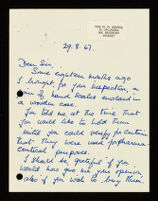 29.8.67.
Dear Sir
Some eighteen months ago
I brought for your inspection, a
pair of hand scales enclosed in
a wooden case.
You told me at the time that
you would like to hold them
until you could verify for certain
that they were used for pharma-
ceutical purposes.
I should be grateful if you
would now give me your opinion,
also if you wish to buy them.